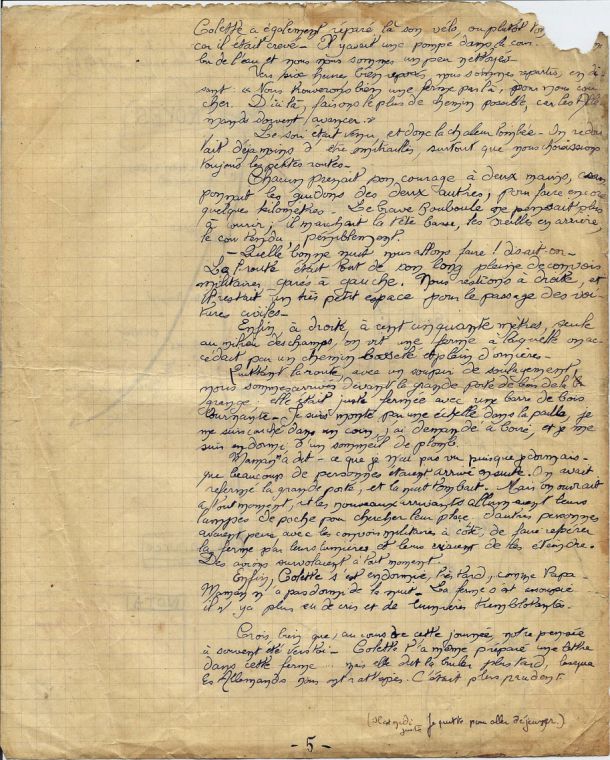 Colette a également réparé là son vélo, ou plutôt
car il était crevé - Il y avait une pompe dans la cour.
bu de l'eau et nous nous sommes un peu nettoyés -
Vers six heures bien reposés, nous sommes repartis, en di-
sant : « Nous trouverons bien une ferme par là, pour nous cou-
cher. D'ici là, faisons le plus de chemin possible, car les Alle-
mands doivent avancer. »
Le soir était venu, et donc la chaleur tombée - On redou-
tait déjà moins d'être mitraillés, surtout que nous choisissions
toujours les petites routes -
Chacun prenait son courage à deux mains,
ponnait les guidons des deux autres, pour faire encore
quelque kilomètres - Le brave Bouboule ne pensait plus
à courir, il marchait la tête basse, les oreilles en arrière,
le cou tendu, péniblement.
- Quelle bonne nuit nous allons faire ! disait-on -
La route était tout de son long pleine de convois
militaires, garés à gauche. Nous restions à droite, et
il restait un très petit espace pour le passage des voi-
tures civiles -
Enfin, à droite, à cent cinquante mètres, seule
au milieu des champs, on vit une ferme à laquelle on ac-
cédait par un chemin bosselé et plein d'ornières -
Quittant la route, avec un soupir de soulagement,
nous sommes arrivés devant la grande porte de bois de la
grange ; elle était juste fermée avec une barre de bois
tournante - Je suis monté par une échelle dans la paille, je
me suis couché dans un coin, j'ai demandé à boire, et je me
suis endormi d'un sommeil de plomb.
Maman m'a dit - ce que je n'ai pas vu puisque je dormais -
que beaucoup de personnes étaient arrivé ensuite. On avait
refermé la grande porte, et la nuit tombait - Mais on ouvrait
à tout moment, et les nouveaux arrivants allumaient leurs
lampes de poche pour chercher leur place, d'autres personnes
avaient peur avec les convois militaires à côté, de faire repérer
la ferme par leurs lumières et leur criaient de les éteindre -
Des avions survolaient à tout moment -
Enfin, Colette s'est endormie, très tard, comme Papa -
Maman n'a pas dormi de la nuit - La ferme s'est assoupie
il n'y a plus eu de cris et de lumières tremblotantes -
Crois bien que, au cours de cette journée, notre pensée
a souvent été vers toi - Colette t'a même préparé une lettre
dans cette ferme ... mais elle dut la brûler plus tard, lorsque
les Allemands nous ont rattrapés. C'était plus prudent.
(Il est midi
juste Je quitte pour aller déjeuner.)
- 5 -